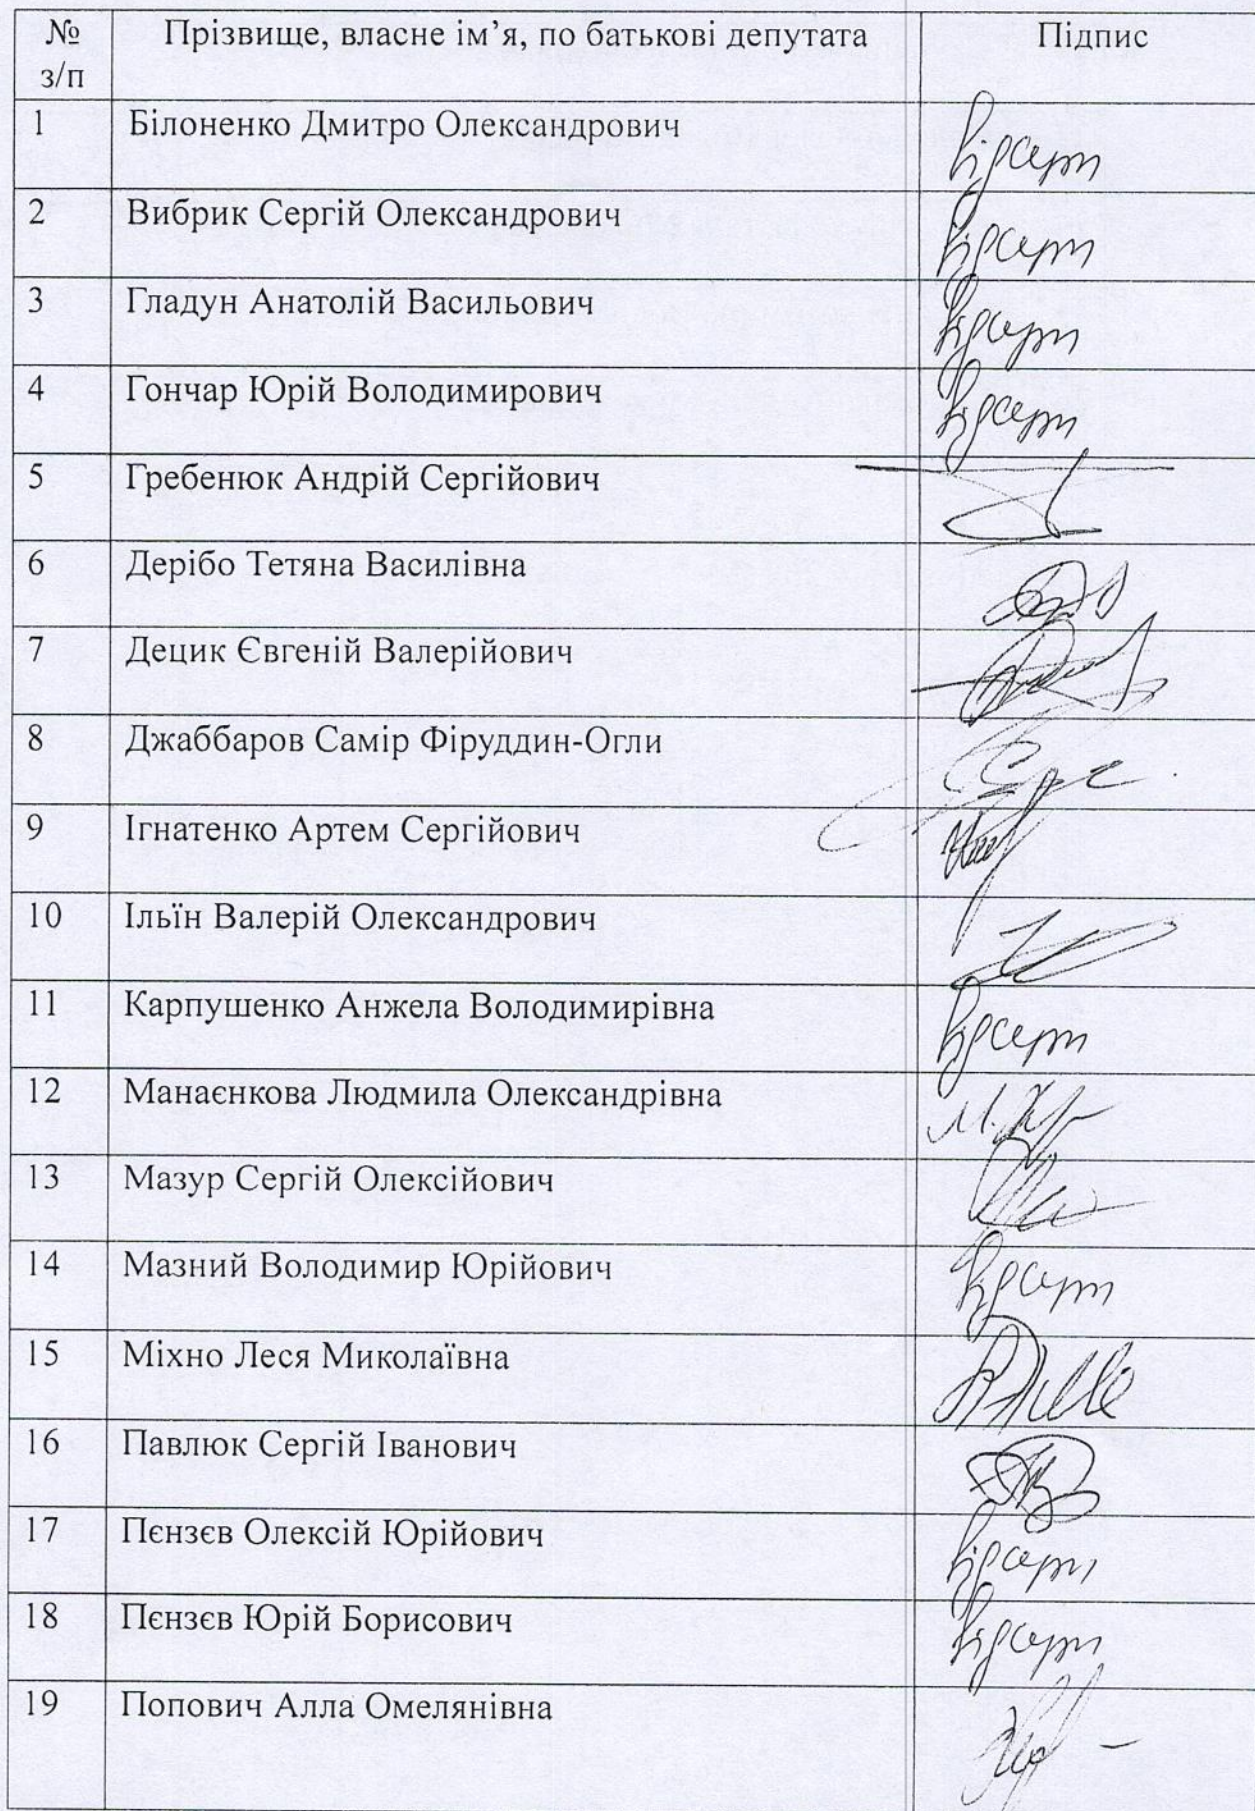 № з/п Прізвище, власне ім’я, по батькові депутата Підпис
1 Білоненко Дмитро Олександрович відсутн
2 Вибрик Сергій Олександрович відсутн
3 Гладун Анатолій Васильович відсутн
4 Гончар Юрій Володимирович відсутн
5 Гребенюк Андрій Сергійович
6 Дерібо Тетяна Василівна
7 Децик Євгеній Валерійович
8 Джаббаров Самір Фіруддин-Огли
9 Ігнатенко Артем Сергійович
10 Ільїн Валерій Олександрович
11 Карпушенко Анжела Володимирівна відсутн
12 Манаєнкова Людмила Олександрівна
13 Мазур Сергій Олексійович
14 Мазний Володимир Юрійович відсутн
15 Міхно Леся Миколаївна
16 Павлюк Сергій Іванович
17 Пєнзєв Олексій Юрійович відсутн
18 Пєнзєв Юрій Борисович відсутн
19 Попович Алла Омелянівна